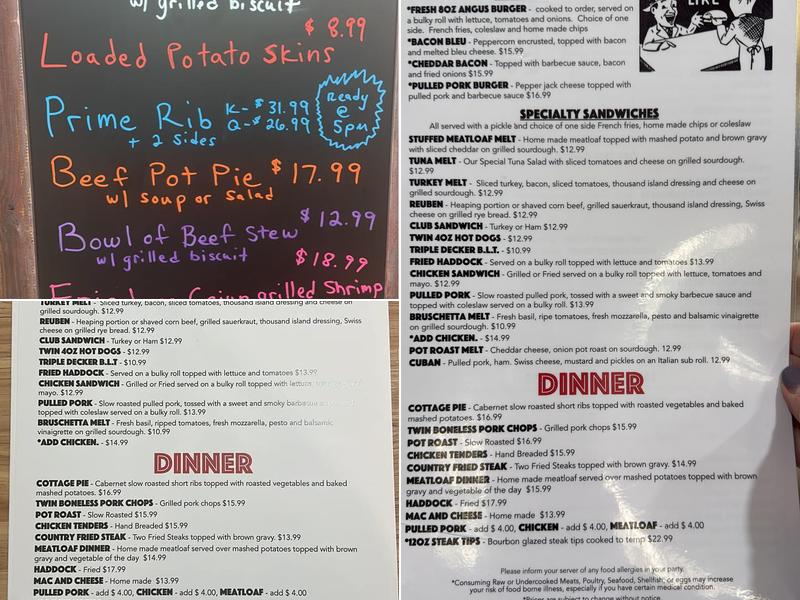 w/ grilled biscuit
$ 8.99
Loaded Potato Skins
Prime Rib K-$31.99
Q-$26.99
+ 2 sides
Ready
@
5pm
Beef Pot Pie $17.99
w/ soup or salad
$12.99
Bowl of Beef Stew
w/ grilled biscuit
$18.99
Cajun grilled Shrimp
TURKEY MELT - Sliced turkey, bacon, sliced tomatoes, thousand island dressing and cheese on
grilled sourdough. $12.99
REUBEN - Heaping portion or shaved corn beef, grilled sauerkraut, thousand island dressing, Swiss
cheese on grilled rye bread. $12.99
CLUB SANDWICH - Turkey or Ham $12.99
TWIN 4OZ HOT DOGS - $12.99
TRIPLE DECKER B.L.T - $10.99
FRIED HADDOCK - Served on a bulky roll topped with lettuce and tomatoes $13.99
CHICKEN SANDWICH - Grilled or Fried served on a bulky roll topped with lettuce,
mayo. $12.99
PULLED PORK - Slow roasted pulled pork, tossed with a sweet and smoky barbecue
topped with coleslaw served on a bulky roll. $13.99
BRUSCHETTA MELT - Fresh basil, ripped tomatoes, fresh mozzarella, pesto and balsamic
vinaigrette on grilled sourdough. $10.99
*ADD CHICKEN. - $14.99
DINNER
COTTAGE PIE - Cabernet slow roasted short ribs topped with roasted vegetables and baked
mashed potatoes. $16.99
TWIN BONELESS PORK CHOPS - Grilled pork chops $15.99
POT ROAST - Slow Roasted $15.99
CHICKEN TENDERS - Hand Breaded $15.99
COUNTRY FRIED STEAK - Two Fried Steaks topped with brown gravy. $13.99
MEATLOAF DINNER - Home made meatloaf served over mashed potatoes topped with brown
gravy and vegetable of the day $14.99
HADDOCK - Fried $17.99
MAC AND CHEESE - Home made $13.99
PULLED PORK - add $ 4.00, CHICKEN - add $ 4.00, MEATLOAF - add $ 4.00
LIKE
*FRESH 8OZ ANGUS BURGER - cooked to order, served on
a bulky roll with lettuce, tomatoes and onions. Choice of one
side. French fries, coleslaw and home made chips
*BACON BLEU - Peppercorn encrusted, topped with bacon
and melted bleu cheese. $15.99
*CHEDDAR BACON - Topped with barbecue sauce, bacon
and fried onions $15.99
*PULLED PORK BURGER - Pepper jack cheese topped with
pulled pork and barbecue sauce $16.99
SPECIALTY SANDWICHES
All served with a pickle and choice of one side French fries, home made chips or coleslaw
STUFFED MEATLOAF MELT - Home made meatloaf topped with mashed potato and brown gravy
with sliced cheddar on grilled sourdough. $12.99
TUNA MELT - Our Special Tuna Salad with sliced tomatoes and cheese on grilled sourdough.
$12.99
TURKEY MELT - Sliced turkey, bacon, sliced tomatoes, thousand island dressing and cheese on
grilled sourdough. $12.99
REUBEN - Heaping portion or shaved corn beef, grilled sauerkraut, thousand island dressing, Swiss
cheese on grilled rye bread. $12.99
CLUB SANDWICH - Turkey or Ham $12.99
TWIN 4OZ HOT DOGS - $12.99
TRIPLE DECKER B.L.T. - $10.99
FRIED HADDOCK - Served on a bulky roll topped with lettuce and tomatoes $13.99
CHICKEN SANDWICH - Grilled or Fried served on a bulky roll topped with lettuce, tomatoes and
mayo. $12.99
PULLED PORK - Slow roasted pulled pork, tossed with a sweet and smoky barbecue sauce and
topped with coleslaw served on a bulky roll. $13.99
BRUSCHETTA MELT - Fresh basil, ripe tomatoes, fresh mozzarella, pesto and balsamic vinaigrette
on grilled sourdough. $10.99
*ADD CHICKEN. - $14.99
POT ROAST MELT - Cheddar cheese, onion pot roast on sourdough. 12.99
CUBAN - Pulled pork, ham. Swiss cheese, mustard and pickles on an Italian sub roll. 12.99
DINNER
COTTAGE PIE - Cabernet slow roasted short ribs topped with roasted vegetables and baked
mashed potatoes. $16.99
TWIN BONELESS PORK CHOPS - Grilled pork chops $15.99
POT ROAST - Slow Roasted $16.99
CHICKEN TENDERS - Hand Breaded $15.99
COUNTRY FRIED STEAK - Two Fried Steaks topped with brown gravy. $14.99
MEATLOAF DINNER - Home made meatloaf served over mashed potatoes topped with brown
gravy and vegetable of the day $15.99
HADDOCK - Fried $17.99
MAC AND CHEESE - Home made $13.99
PULLED PORK - add $ 4.00, CHICKEN - add $ 4.00, MEATLOAF - add $ 4.00
*12OZ STEAK TIPS - Bourbon glazed steak tips cooked to temp $22.99
Please inform your server of any food allergies in your party.
*Consuming Raw or Undercooked Meats, Poultry, Seafood, Shellfish, or eggs may increase
your risk of food borne illness, especially if you have certain medical condition.
*Prices are subject to change without notice.